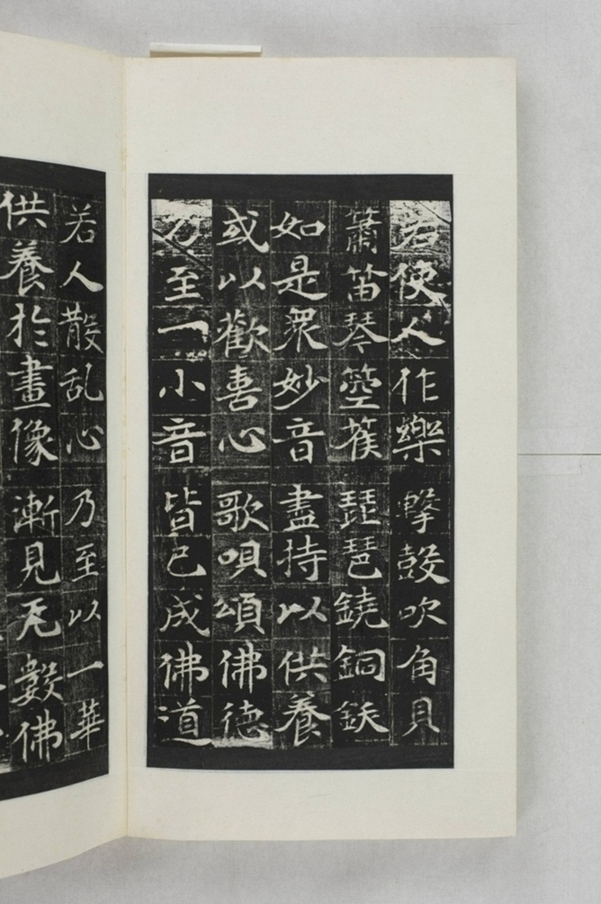 若使人作樂 擊鼓吹角貝
簫笛琴箜篌 琵琶鐃銅鈸
如是衆妙音 盡持以供養
或以歡喜心 歌唄頌佛德
乃至一小音 皆已成佛道
若人散乱心 乃至以一華
供養於畫像 漸見无數佛